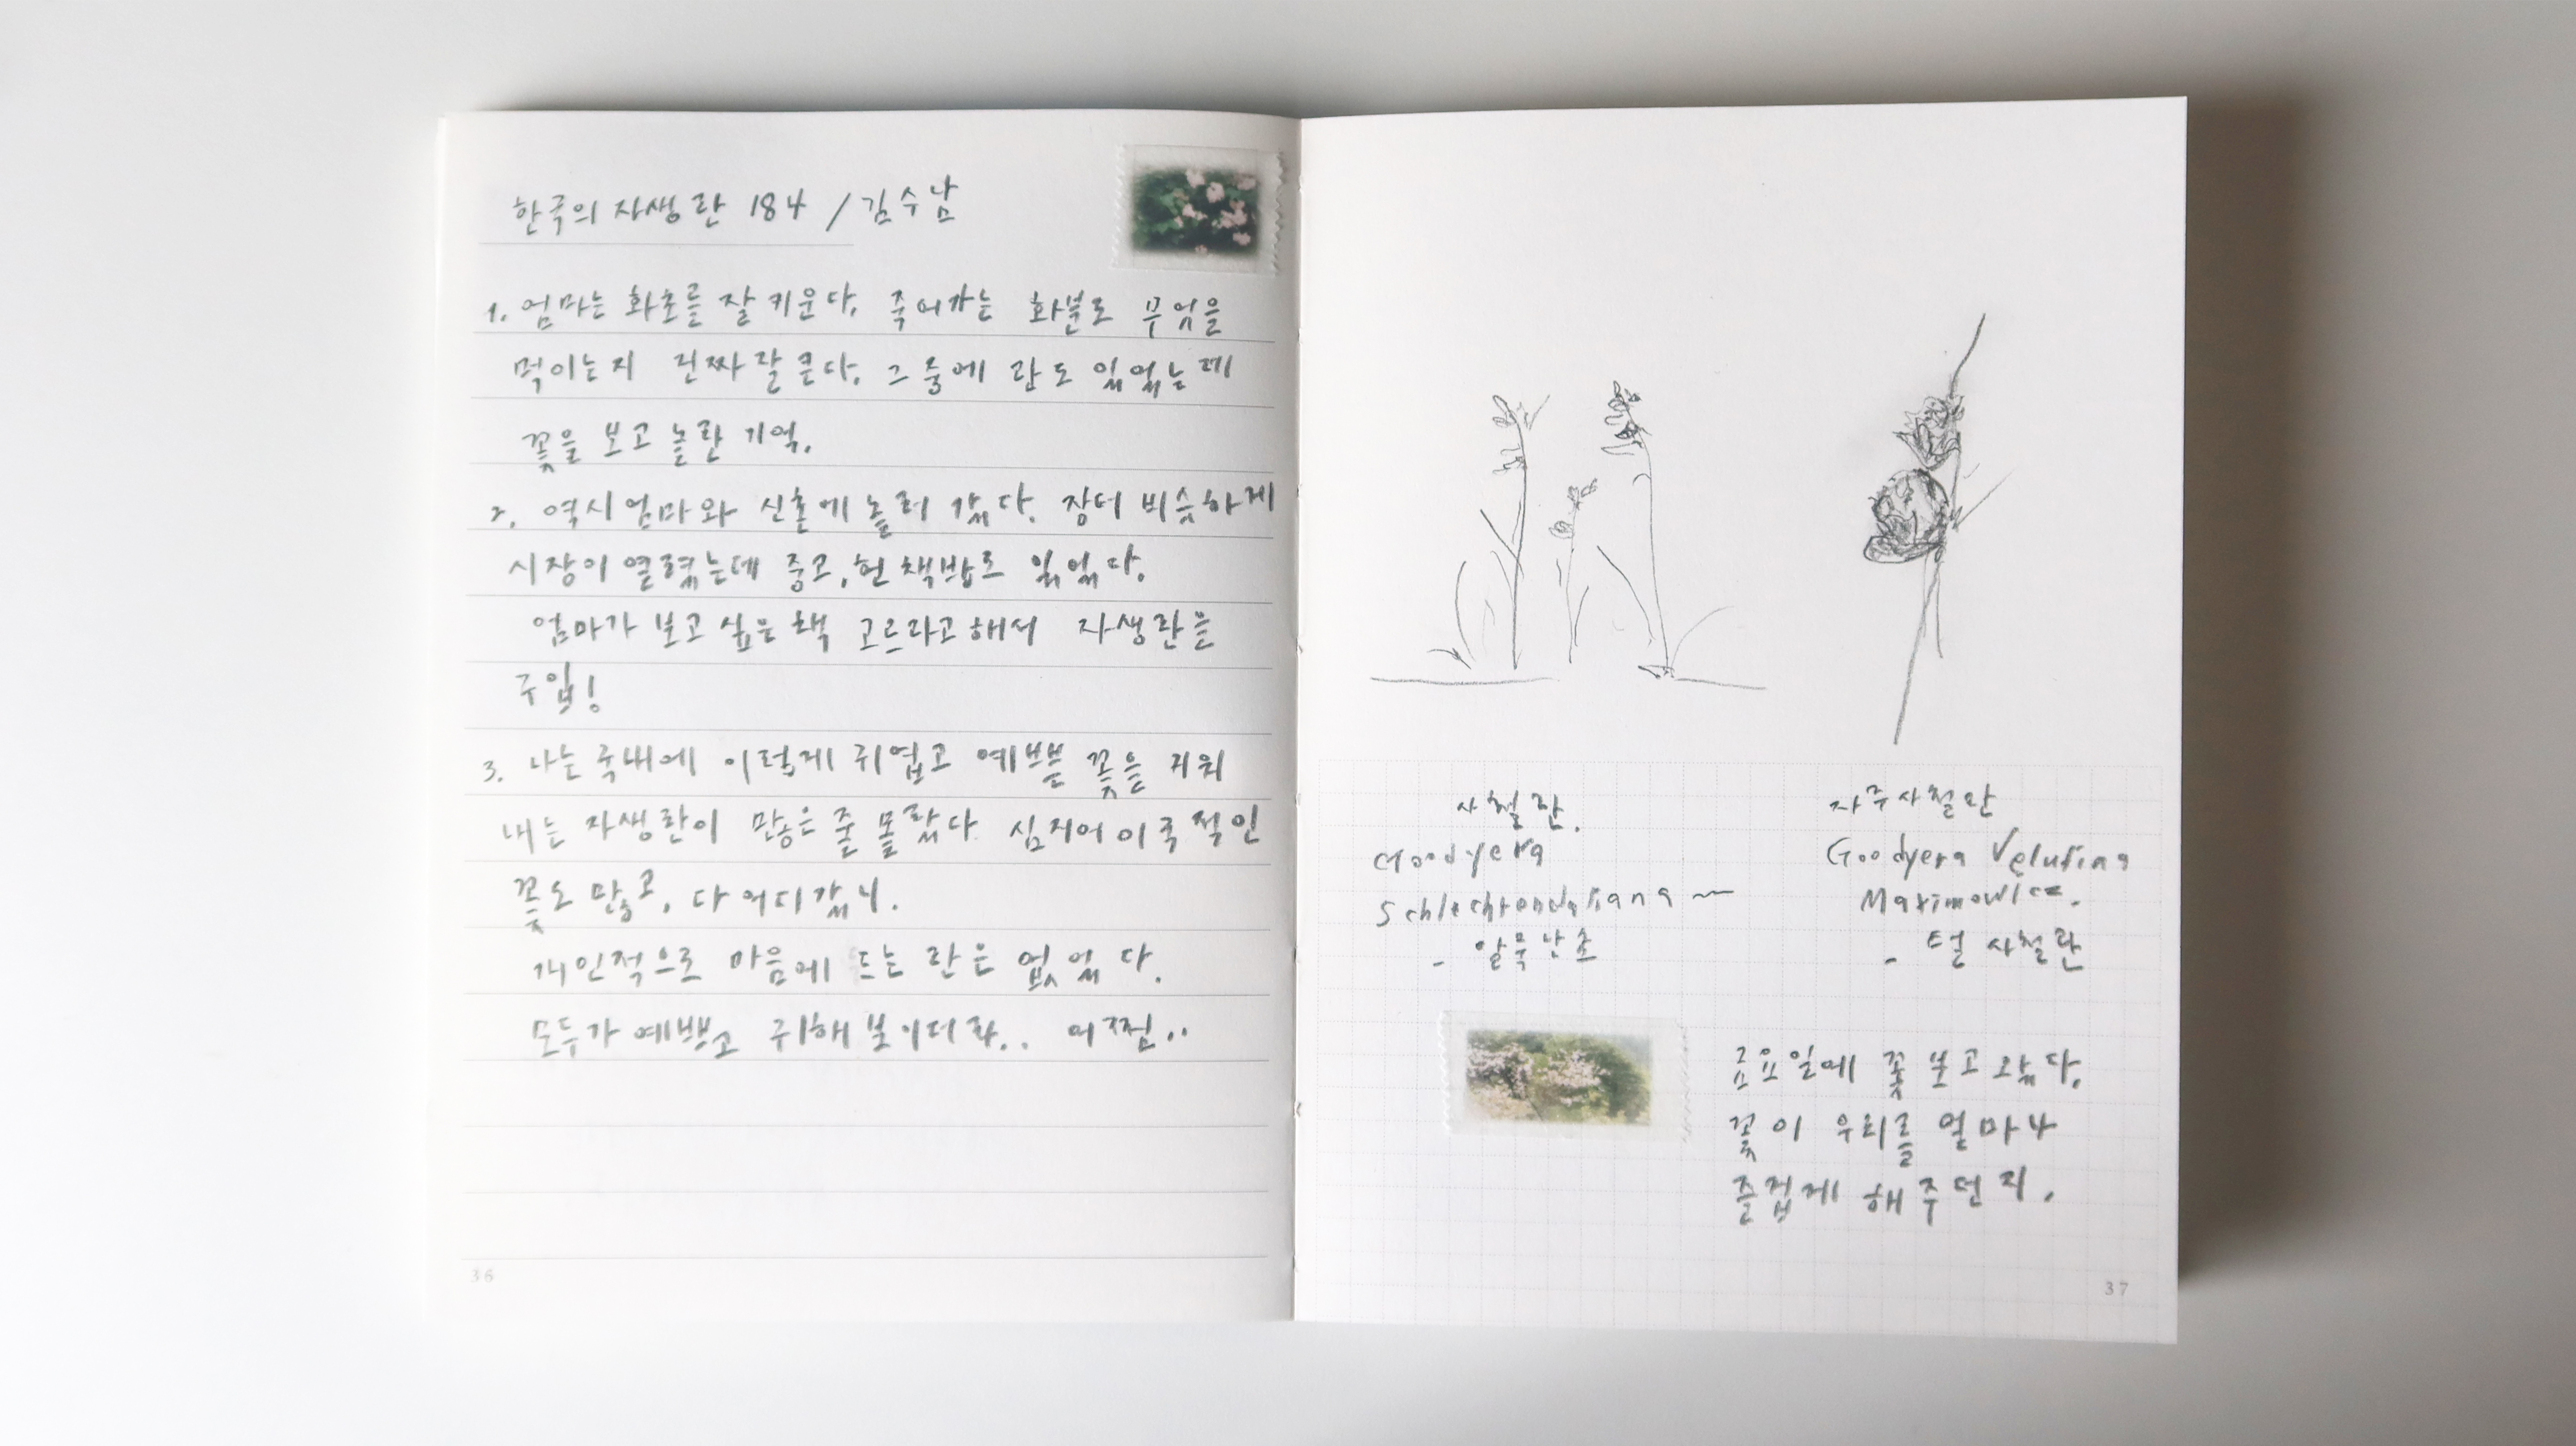 한국의 자생란 184 / 김수남
1. 엄마는 화초를 잘 키운다. 죽어가는 화분도 무엇을
먹이는지 진짜 잘 큰다. 그 중에 란도 있었는데
꽃을 보고 놀란 기억.
2. 역시 엄마와 신촌에 놀러 갔다. 장터 비슷하게
시장이 열렸는데 중고, 헌 책방도 있었다.
엄마가 보고 싶은 책 고르라고 해서 자생란을
구입!
3. 나는 국내에 이렇게 귀엽고 예쁜 꽃을 키워
내는 자생란이 많은 줄 몰랐다. 심지어 이국적인
꽃도 많고, 다 어디갔니.
개인적으로 마음에 드는 란은 없었다.
모두가 예쁘고 귀해 보이더라.. 어쩜..
36
사철란.
Goodyera
Schlechtendaliana ~
- 알록난초
자주사철란
Goodyera Velutina
Maximowicz.
- 털 사철란
금요일에 꽃 보고 왔다.
꽃이 우리를 얼마나
즐겁게 해주던지.
37